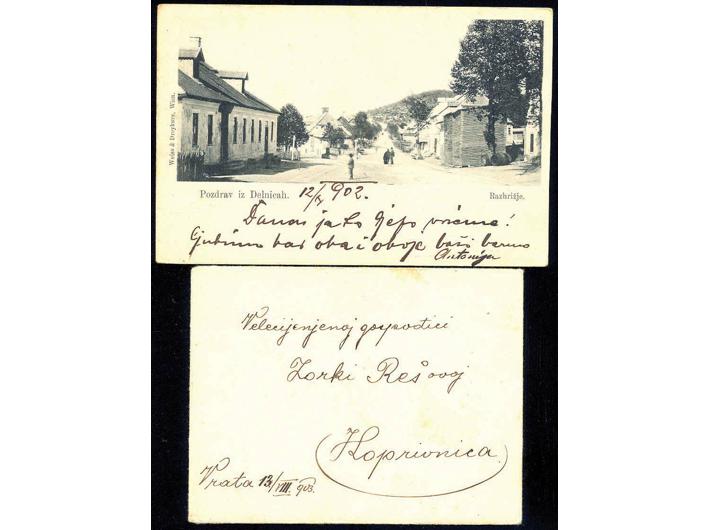 Weiss & Dreykurs, Wien.
Pozdrav iz Delnicah. 12/X 902. Razkrižje.
Danas jako lijepo vrieme!
Ljubimo Vas oba i oboje
Antonija
Velecijenjenoj gospodici
Zorki Rešovoj
Koprivnica
Vrata 13/VIII. 903.